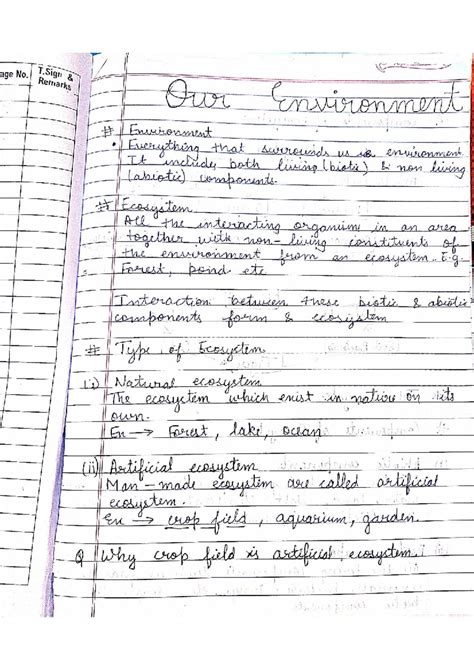 age No.
T.Sign &
Remarks
Our Environment
# Environment
• Everything that surrounds us is environment
It include both living (biotic) & non living
(abiotic) components.
# Ecosystem
All the interacting organism in an area
together with non-living constituents of
the environment from an ecosystem. E.g.
Forest, pond etc
Interaction between these biotic & abiotic
components form & ecosystem
# Type of Ecosystem
(i) Natural ecosystem
The ecosystem which exist in nation on its
own.
En → Forest, lake, ocean
(ii) Artificial ecosystem
Man-made ecosystem are called artificial
ecosystem.
En → crop field, aquarium, garden.
Q Why crop field is artificial ecosystem.